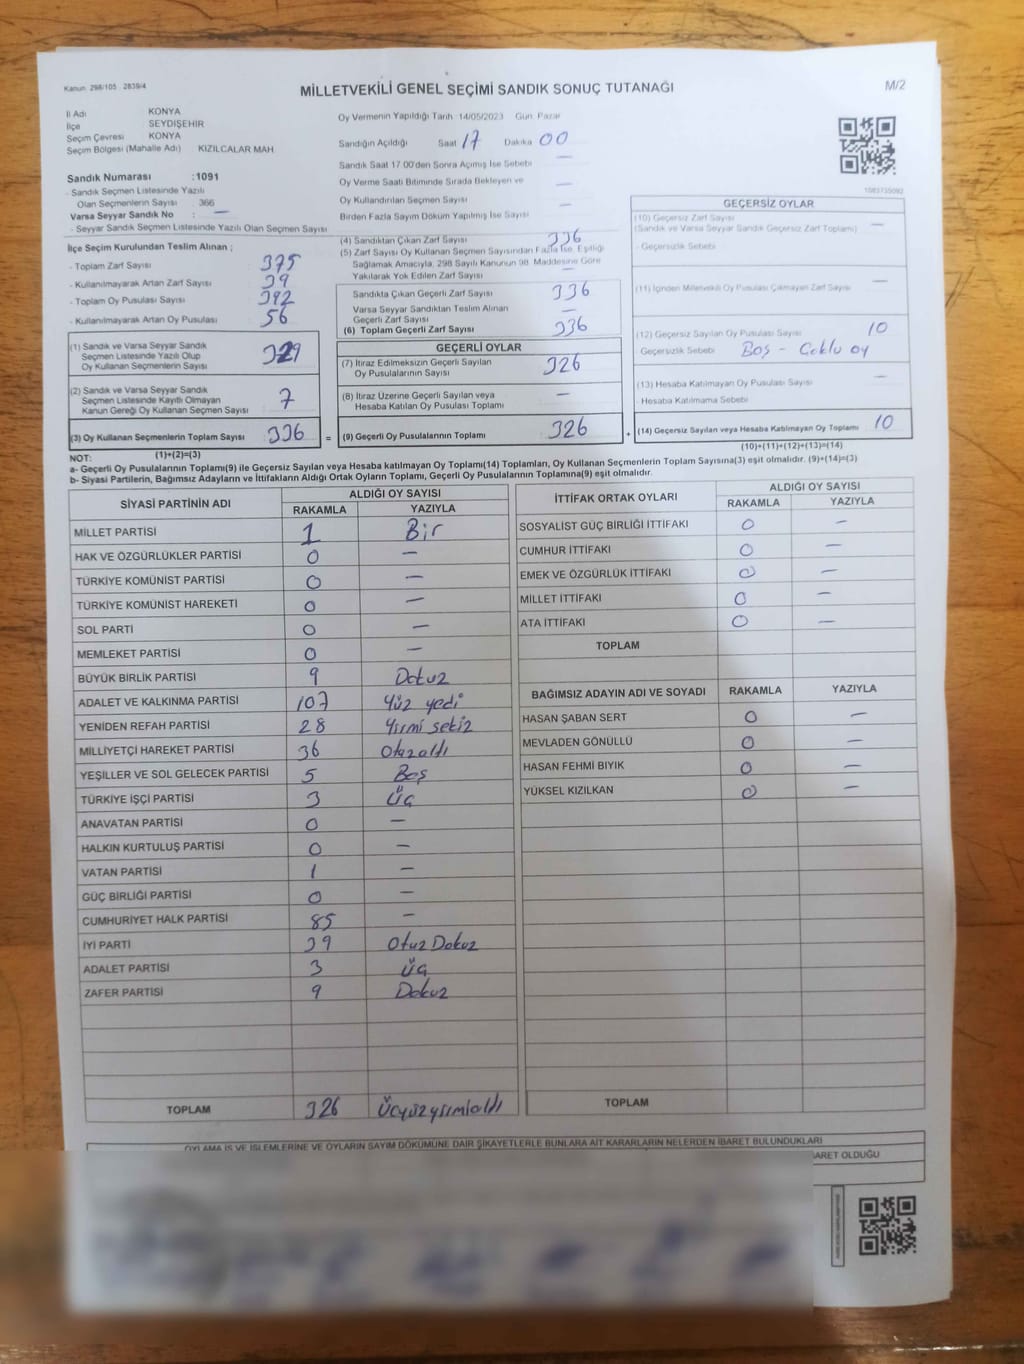 Kanun: 298/105 2839/4
MİLLETVEKİLİ GENEL SEÇİMİ SANDIK SONUÇ TUTANAĞI
M/2
İl Adı KONYA
İlçe SEYDİŞEHİR
Seçim Çevresi KONYA
Seçim Bölgesi (Mahalle Adı) KIZILCALAR MAH.
Sandık Numarası :1091
- Sandık Seçmen Listesinde Yazılı
Olan Seçmenlerin Sayısı : 366
Varsa Seyyar Sandık No : —
- Seyyar Sandık Seçmen Listesinde Yazılı Olan Seçmen Sayısı
Oy Vermenin Yapıldığı Tarih 14/05/2023 Gün: Pazar
Sandığın Açıldığı Saat 17 Dakika 00
Sandık Saat 17.00'den Sonra Açmış İse Sebebi —
Oy Verme Saati Bitiminde Sırada Bekleyen ve —
Oy Kullandırılan Seçmen Sayısı —
Birden Fazla Sayım Döküm Yapılmış İse Sayısı
İlçe Seçim Kurulundan Teslim Alınan ;
- Toplam Zarf Sayısı 375
- Kullanılmayarak Artan Zarf Sayısı 39
- Toplam Oy Pusulası Sayısı 392
- Kullanılmayarak Artan Oy Pusulası 56
(1) Sandık ve Varsa Seyyar Sandık
Seçmen Listesinde Yazılı Olup
Oy Kullanan Seçmenlerin Sayısı 329
(2) Sandık ve Varsa Seyyar Sandık
Seçmen Listesinde Kayıtlı Olmayan
Kanun Gereği Oy Kullanan Seçmen Sayısı 7
(3) Oy Kullanan Seçmenlerin Toplam Sayısı 336 =
(4) Sandıktan Çıkan Zarf Sayısı 336
(5) Zarf Sayısı Oy Kullanan Seçmen Sayısından Fazla İse, Eşitliği
Sağlamak Amacıyla, 298 Sayılı Kanunun 98. Maddesine Göre
Yakılarak Yok Edilen Zarf Sayısı —
Sandıkta Çıkan Geçerli Zarf Sayısı 336
Varsa Seyyar Sandıktan Teslim Alınan
Geçerli Zarf Sayısı —
(6) Toplam Geçerli Zarf Sayısı 336
GEÇERLİ OYLAR
(7) İtiraz Edilmeksizin Geçerli Sayılan
Oy Pusulalarının Sayısı 326
(8) İtiraz Üzerine Geçerli Sayılan veya
Hesaba Katılan Oy Pusulası Toplamı —
(9) Geçerli Oy Pusulalarının Toplamı 326 +
1083735092
GEÇERSİZ OYLAR
(10) Geçersiz Zarf Sayısı
(Sandık ve Varsa Seyyar Sandık Geçersiz Zarf Toplamı) —
- Geçersizlik Sebebi
(11) İçinden Milletvekili Oy Pusulası Çıkmayan Zarf Sayısı —
(12) Geçersiz Sayılan Oy Pusulası Sayısı 10
Geçersizlik Sebebi Boş - Çoklu oy
(13) Hesaba Katılmayan Oy Pusulası Sayısı —
- Hesaba Katılmama Sebebi
(14) Geçersiz Sayılan veya Hesaba Katılmayan Oy Toplamı 10
NOT: (1)+(2)=(3) (10)+(11)+(12)+(13)=(14)
a- Geçerli Oy Pusulalarının Toplamı(9) ile Geçersiz Sayılan veya Hesaba katılmayan Oy Toplamı(14) Toplamları, Oy Kullanan Seçmenlerin Toplam Sayısına(3) eşit olmalıdır. (9)+(14)=(3)
b- Siyasi Partilerin, Bağımsız Adayların ve İttifakların Aldığı Ortak Oyların Toplamı, Geçerli Oy Pusulalarının Toplamına(9) eşit olmalıdır.
SİYASİ PARTİNİN ADI ALDIĞI OY SAYISI
RAKAMLA YAZIYLA
MİLLET PARTİSİ 1 Bir
HAK VE ÖZGÜRLÜKLER PARTİSİ 0 —
TÜRKİYE KOMÜNİST PARTİSİ 0 —
TÜRKİYE KOMÜNİST HAREKETİ 0 —
SOL PARTİ 0 —
MEMLEKET PARTİSİ 0 —
BÜYÜK BİRLİK PARTİSİ 9 Dokuz
ADALET VE KALKINMA PARTİSİ 107 Yüz yedi
YENİDEN REFAH PARTİSİ 28 Yirmi sekiz
MİLLİYETÇİ HAREKET PARTİSİ 36 Otuzaltı
YEŞİLLER VE SOL GELECEK PARTİSİ 5 Beş
TÜRKİYE İŞÇİ PARTİSİ 3 Üç
ANAVATAN PARTİSİ 0 —
HALKIN KURTULUŞ PARTİSİ 0 —
VATAN PARTİSİ 1 —
GÜÇ BİRLİĞİ PARTİSİ 0 —
CUMHURİYET HALK PARTİSİ 85 —
İYİ PARTİ 39 Otuz Dokuz
ADALET PARTİSİ 3 Üç
ZAFER PARTİSİ 9 Dokuz
TOPLAM 326 Üçyüzyirmialtı
İTTİFAK ORTAK OYLARI ALDIĞI OY SAYISI
RAKAMLA YAZIYLA
SOSYALİST GÜÇ BİRLİĞİ İTTİFAKI 0 —
CUMHUR İTTİFAKI 0 —
EMEK VE ÖZGÜRLÜK İTTİFAKI 0 —
MİLLET İTTİFAKI 0 —
ATA İTTİFAKI 0 —
TOPLAM
BAĞIMSIZ ADAYIN ADI VE SOYADI RAKAMLA YAZIYLA
HASAN ŞABAN SERT 0 —
MEVLADEN GÖNÜLLÜ 0 —
HASAN FEHMİ BIYIK 0 —
YÜKSEL KIZILKAN 0 —
TOPLAM
OYLAMA İŞ VE İŞLEMLERİNE VE OYLARIN SAYIM DÖKÜMÜNE DAİR ŞİKAYETLERLE BUNLARA AİT KARARLARIN NELERDEN İBARET BULUNDUKLARI
BARET OLDUĞU